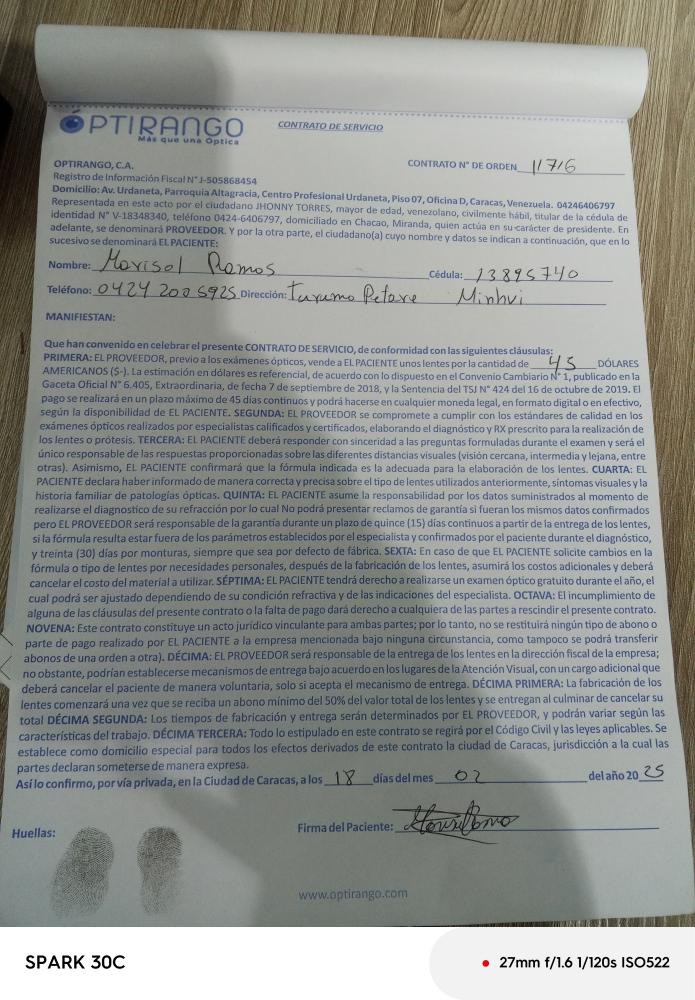 OPTIRANGO
Más que una Óptica
CONTRATO DE SERVICIO
OPTIRANGO, C.A.
CONTRATO N° DE ORDEN 11716
Registro de Información Fiscal N° J-505868454
Domicilio: Av. Urdaneta, Parroquia Altagracia, Centro Profesional Urdaneta, Piso 07, Oficina D, Caracas, Venezuela. 04246406797
Representada en este acto por el ciudadano JHONNY TORRES, mayor de edad, venezolano, civilmente hábil, titular de la cédula de
identidad N° V-18348340, teléfono 0424-6406797, domiciliado en Chacao, Miranda, quien actúa en su carácter de presidente. En
adelante, se denominará PROVEEDOR. Y por la otra parte, el ciudadano(a) cuyo nombre y datos se indican a continuación, que en lo
sucesivo se denominará EL PACIENTE:
Nombre: Marisol Ramos Cédula: 13895740
Teléfono: 0424 200 5925 Dirección: Turumo Petare Minhvi
MANIFIESTAN:
Que han convenido en celebrar el presente CONTRATO DE SERVICIO, de conformidad con las siguientes cláusulas:
PRIMERA: EL PROVEEDOR, previo a los exámenes ópticos, vende a EL PACIENTE unos lentes por la cantidad de 45 DÓLARES
AMERICANOS ($-). La estimación en dólares es referencial, de acuerdo con lo dispuesto en el Convenio Cambiario N° 1, publicado en la
Gaceta Oficial N° 6.405, Extraordinaria, de fecha 7 de septiembre de 2018, y la Sentencia del TSJ N° 424 del 16 de octubre de 2019. El
pago se realizará en un plazo máximo de 45 días continuos y podrá hacerse en cualquier moneda legal, en formato digital o en efectivo,
según la disponibilidad de EL PACIENTE. SEGUNDA: EL PROVEEDOR se compromete a cumplir con los estándares de calidad en los
exámenes ópticos realizados por especialistas calificados y certificados, elaborando el diagnóstico y RX prescrito para la realización de
los lentes o prótesis. TERCERA: EL PACIENTE deberá responder con sinceridad a las preguntas formuladas durante el examen y será el
único responsable de las respuestas proporcionadas sobre las diferentes distancias visuales (visión cercana, intermedia y lejana, entre
otras). Asimismo, EL PACIENTE confirmará que la fórmula indicada es la adecuada para la elaboración de los lentes. CUARTA: EL
PACIENTE declara haber informado de manera correcta y precisa sobre el tipo de lentes utilizados anteriormente, síntomas visuales y la
historia familiar de patologías ópticas. QUINTA: EL PACIENTE asume la responsabilidad por los datos suministrados al momento de
realizarse el diagnostico de su refracción por lo cual No podrá presentar reclamos de garantía si fueran los mismos datos confirmados
pero EL PROVEEDOR será responsable de la garantía durante un plazo de quince (15) días continuos a partir de la entrega de los lentes,
si la fórmula resulta estar fuera de los parámetros establecidos por el especialista y confirmados por el paciente durante el diagnóstico,
y treinta (30) días por monturas, siempre que sea por defecto de fábrica. SEXTA: En caso de que EL PACIENTE solicite cambios en la
fórmula o tipo de lentes por necesidades personales, después de la fabricación de los lentes, asumirá los costos adicionales y deberá
cancelar el costo del material a utilizar. SÉPTIMA: EL PACIENTE tendrá derecho a realizarse un examen óptico gratuito durante el año, el
cual podrá ser ajustado dependiendo de su condición refractiva y de las indicaciones del especialista. OCTAVA: El incumplimiento de
alguna de las cláusulas del presente contrato o la falta de pago dará derecho a cualquiera de las partes a rescindir el presente contrato.
NOVENA: Este contrato constituye un acto jurídico vinculante para ambas partes; por lo tanto, no se restituirá ningún tipo de abono o
parte de pago realizado por EL PACIENTE a la empresa mencionada bajo ninguna circunstancia, como tampoco se podrá transferir
abonos de una orden a otra). DÉCIMA: EL PROVEEDOR será responsable de la entrega de los lentes en la dirección fiscal de la empresa;
no obstante, podrían establecerse mecanismos de entrega bajo acuerdo en los lugares de la Atención Visual, con un cargo adicional que
deberá cancelar el paciente de manera voluntaria, solo si acepta el mecanismo de entrega. DÉCIMA PRIMERA: La fabricación de los
lentes comenzará una vez que se reciba un abono mínimo del 50% del valor total de los lentes y se entregan al culminar de cancelar su
total DÉCIMA SEGUNDA: Los tiempos de fabricación y entrega serán determinados por EL PROVEEDOR, y podrán variar según las
características del trabajo. DÉCIMA TERCERA: Todo lo estipulado en este contrato se regirá por el Código Civil y las leyes aplicables. Se
establece como domicilio especial para todos los efectos derivados de este contrato la ciudad de Caracas, jurisdicción a la cual las
partes declaran someterse de manera expresa.
Así lo confirmo, por vía privada, en la Ciudad de Caracas, a los 18 días del mes 02 del año 2025
Huellas:
Firma del Paciente:
www.optirango.com
SPARK 30C
27mm f/1.6 1/120s ISO522